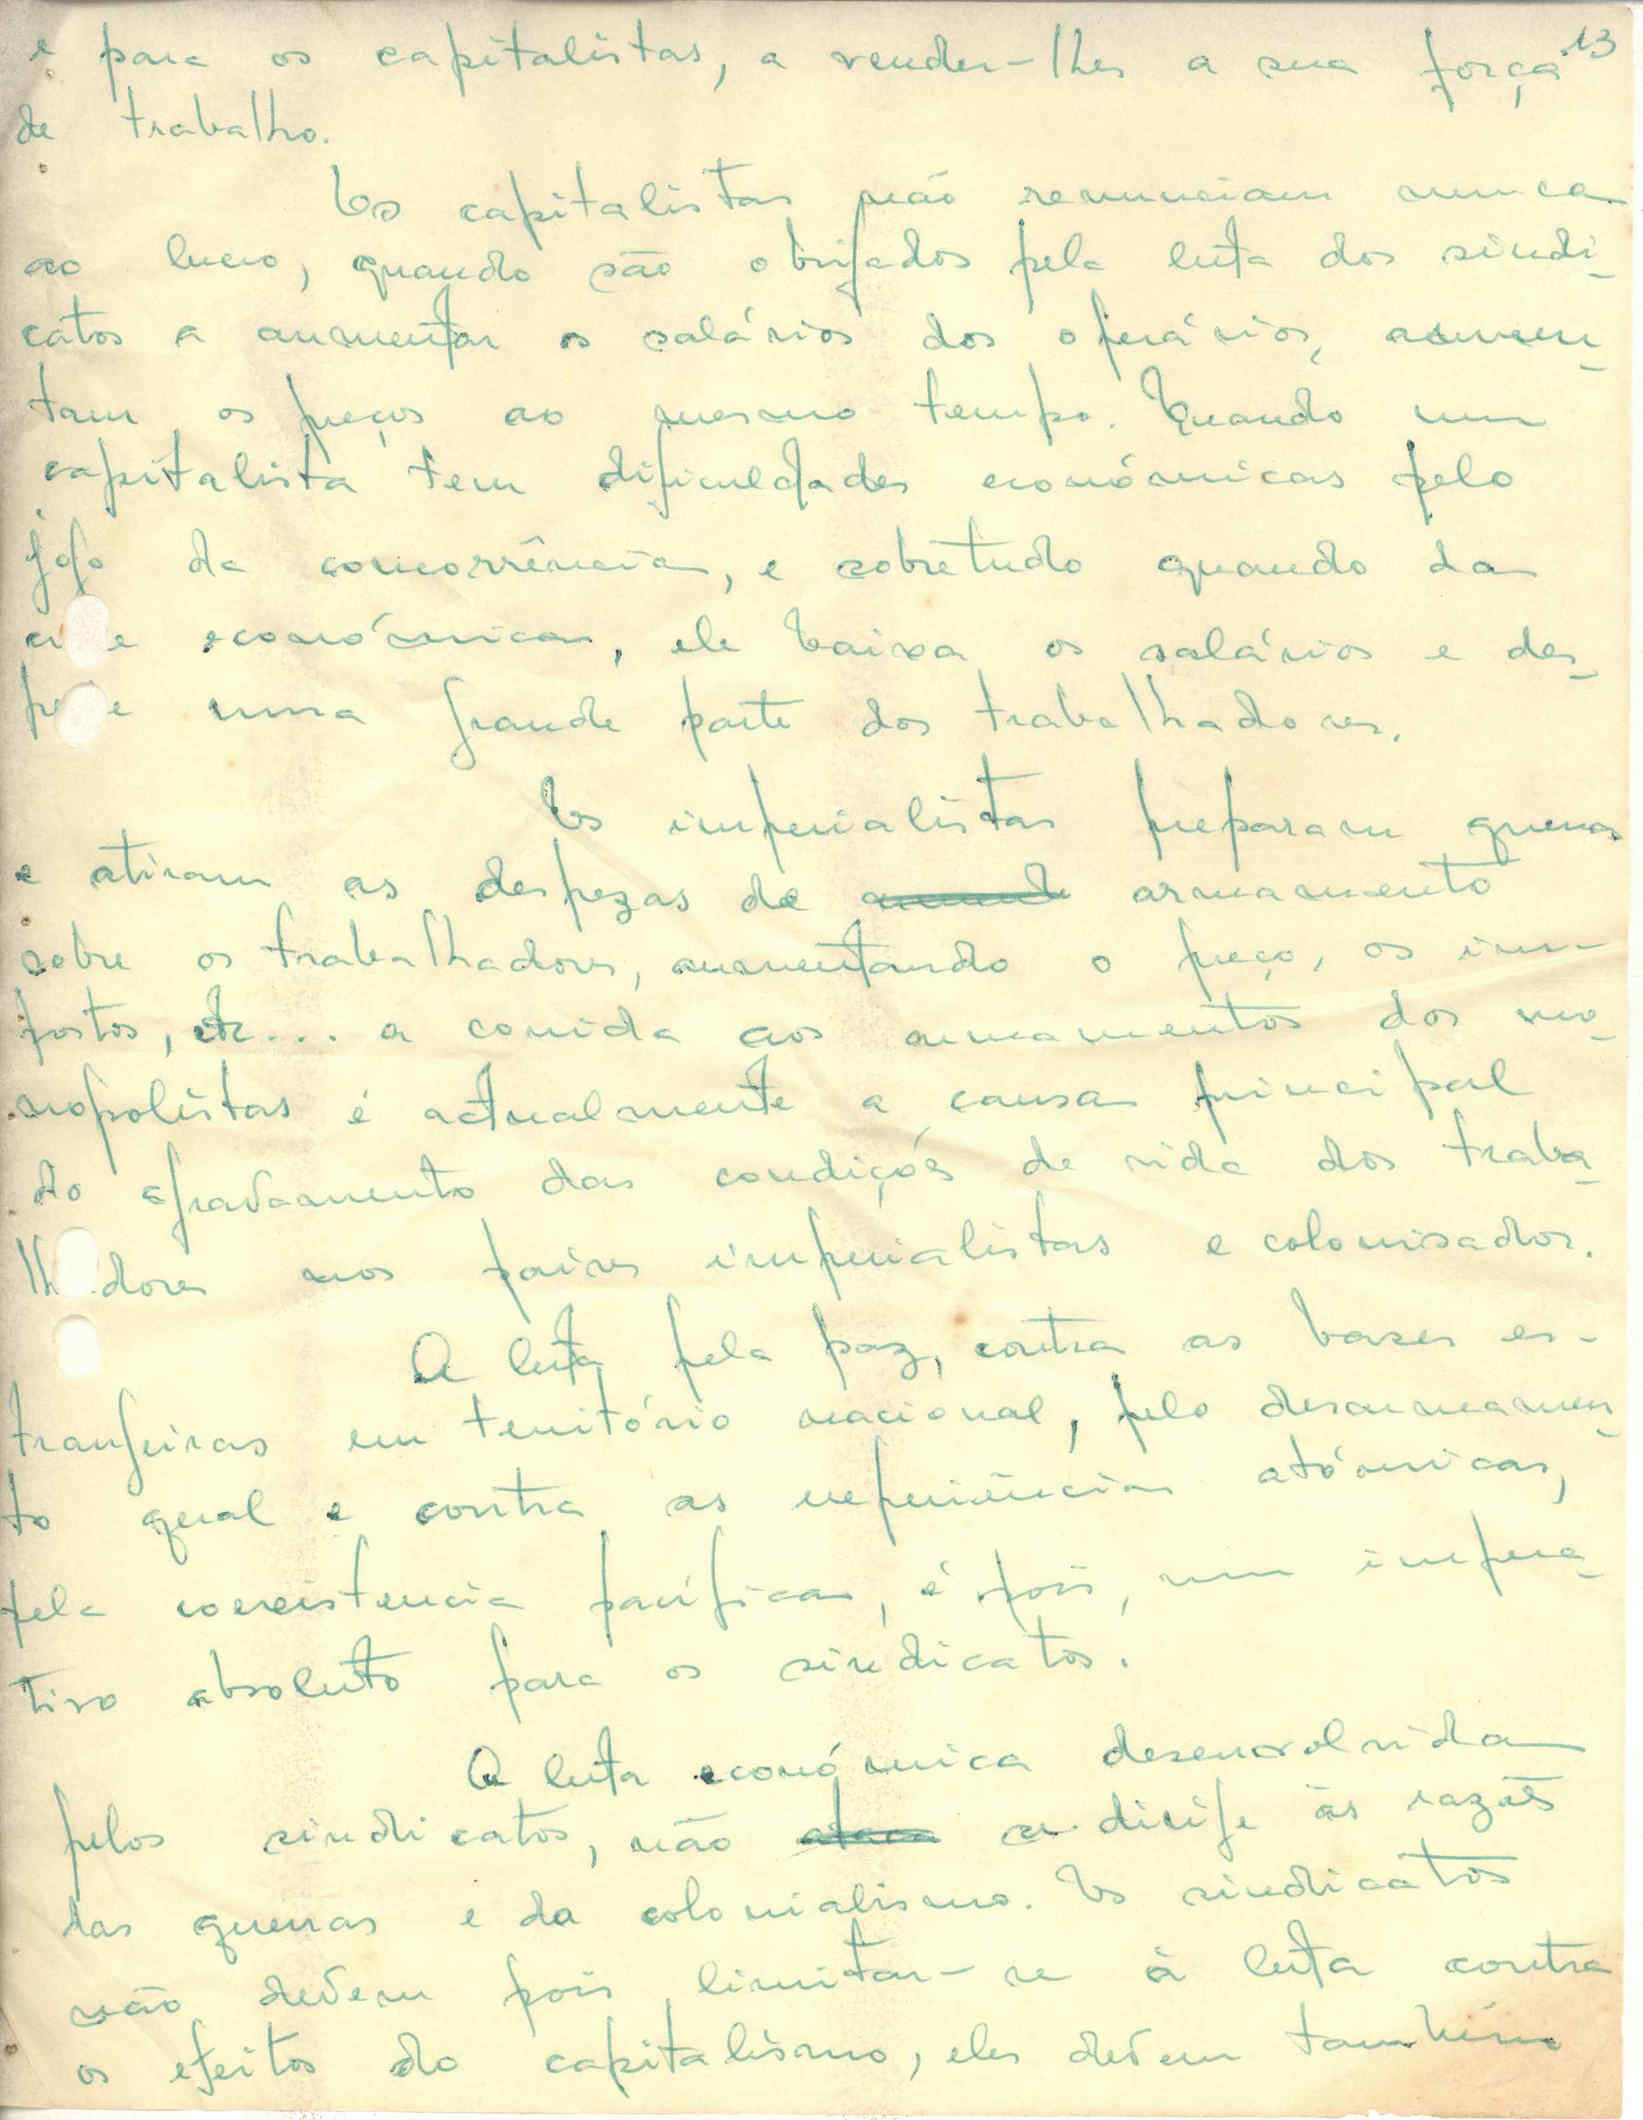 13
e para os capitalistas, a vender-lhes a sua força
de trabalho.
Os capitalistas não renunciam nunca
ao lucro, quando são obrigados pela luta dos sindi-
catos a aumentar os salários dos operários, aumen-
tam os preços ao mesmo tempo. Quando um
capitalista tem dificuldades económicas pelo
jogo da concorrência, e sobretudo quando da
cri e económica, ele baixa os salários e des-
pe e uma grande parte dos trabalhadores.
Os imperialistas preparam guerras
e atiram as despezas de armamento
sobre os trabalhadores, aumentando o preço, os im-
postos, etc... a corrida aos armamentos dos mo-
nopolistas é actualmente a causa principal
do agravamento das condições de vida dos traba-
lh dores nos paises imperialistas e colonisador.
A luta pela paz, contra as bases es-
trangeiras em território nacional, pelo desarmamen-
to geral e contra as experiências atómicas,
pela coexistencia pacífica, é pois, um impera-
tivo absoluto para os sindicatos.
A luta económica desenvolvida
pelos sindicatos, não se dirije às razões
das guerras e do colonialismo. Os sindicatos
não devem pois limitar-se à luta contra
os efeitos do capitalismo, eles devem também